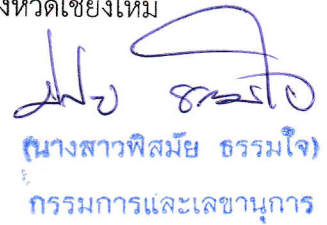 งหวัดเชียงใหม่
(นางสาวพิสมัย ธรรมใจ)
กรรมการและเลขานุการ